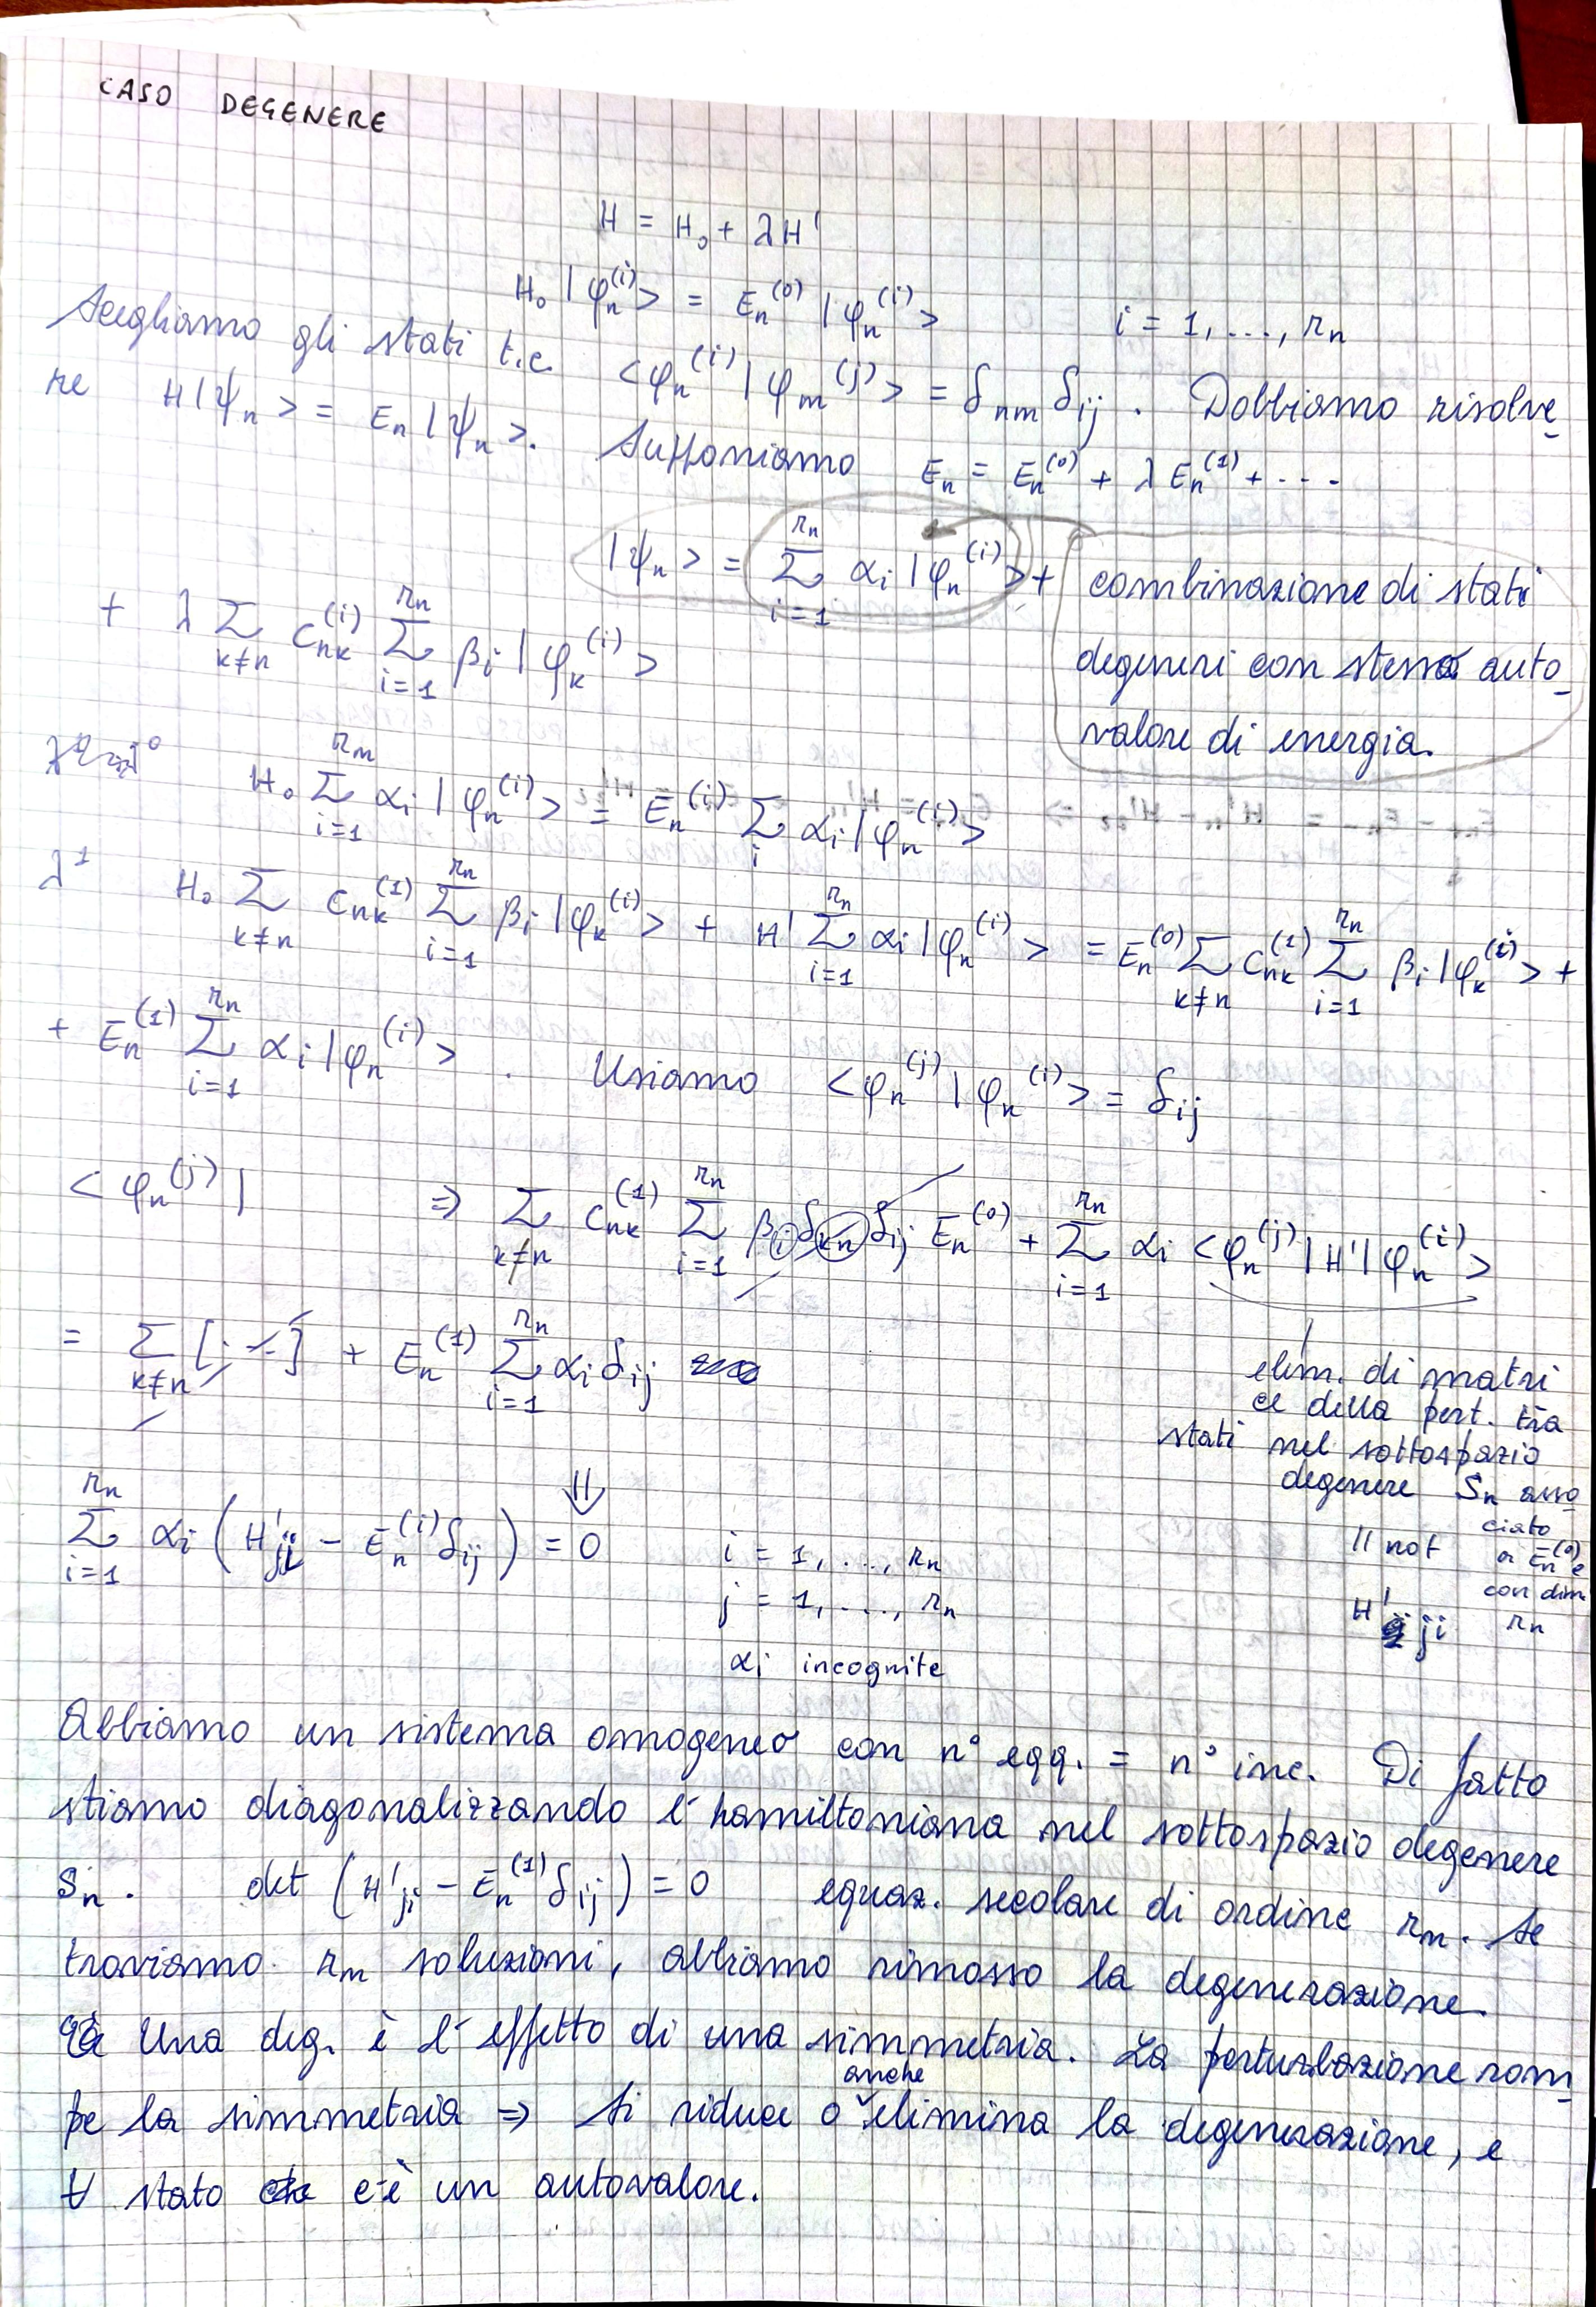 CASO DEGENERE
H = H₀ + λH'
H₀ |φₙ⁽ⁱ⁾> = Eₙ⁽⁰⁾ |φₙ⁽ⁱ⁾>    i = 1, ..., rₙ
Scegliamo gli stati t.c. <φₙ⁽ⁱ⁾|φₘ⁽ʲ⁾> = δₙₘ δᵢⱼ. Dobbiamo risolve-
re H|ψₙ> = Eₙ|ψₙ>. Supponiamo Eₙ = Eₙ⁽⁰⁾ + λEₙ⁽¹⁾ + ...
|ψₙ> = Σᵢ₌₁^{rₙ} αᵢ |φₙ⁽ⁱ⁾> +
+ λ Σ_{k≠n} cₙₖ⁽ⁱ⁾ Σᵢ₌₁^{rₙ} βᵢ |φₖ⁽ⁱ⁾>
combinazione di stati
degeneri con stesso auto-
valore di energia.
λ⁰ H₀ Σᵢ₌₁^{rₙ} αᵢ |φₙ⁽ⁱ⁾> = Eₙ⁽ⁱ⁾ Σᵢ αᵢ |φₙ⁽ⁱ⁾>
λ¹ H₀ Σ_{k≠n} cₙₖ⁽¹⁾ Σᵢ₌₁^{rₙ} βᵢ |φₖ⁽ⁱ⁾> + H' Σᵢ₌₁^{rₙ} αᵢ |φₙ⁽ⁱ⁾> = Eₙ⁽⁰⁾ Σ_{k≠n} cₙₖ⁽¹⁾ Σᵢ₌₁^{rₙ} βᵢ |φₖ⁽ⁱ⁾> +
+ Eₙ⁽¹⁾ Σᵢ₌₁^{rₙ} αᵢ |φₙ⁽ⁱ⁾>. Usiamo <φₙ⁽ʲ⁾|φₙ⁽ⁱ⁾> = δᵢⱼ
<φₙ⁽ʲ⁾| ⇒ Σ_{k≠n} cₙₖ⁽¹⁾ Σᵢ₌₁^{rₙ} βᵢ δₖₙ δᵢⱼ Eₙ⁽⁰⁾ + Σᵢ₌₁^{rₙ} αᵢ <φₙ⁽ʲ⁾|H'|φₙ⁽ⁱ⁾>
= Σ_{k≠n} [...] + Eₙ⁽¹⁾ Σᵢ₌₁^{rₙ} αᵢ δᵢⱼ
elem. di matri
ce della pert. tra
stati nel sottospazio
degenere Sₙ asso
ciato
a Eₙ⁽⁰⁾ e
con dim
rₙ
|| not
H'ji
⇓
Σᵢ₌₁^{rₙ} αᵢ (H'ji − Eₙ⁽ⁱ⁾ δᵢⱼ) = 0    i = 1, ..., rₙ
j = 1, ..., rₙ
αᵢ incognite
Abbiamo un sistema omogeneo con n° eqq. = n° inc. Di fatto
stiamo diagonalizzando l'hamiltoniana nel sottospazio degenere
Sₙ. det (H'ji − Eₙ⁽¹⁾ δᵢⱼ) = 0 equaz. secolare di ordine rₙ. Se
troviamo rₙ soluzioni, abbiamo rimosso la degenerazione.
Una deg. è l'effetto di una simmetria. La perturbazione rom-
pe la simmetria ⇒ Si riduce o anche elimina la degenerazione, e
∀ stato c'è un autovalore.